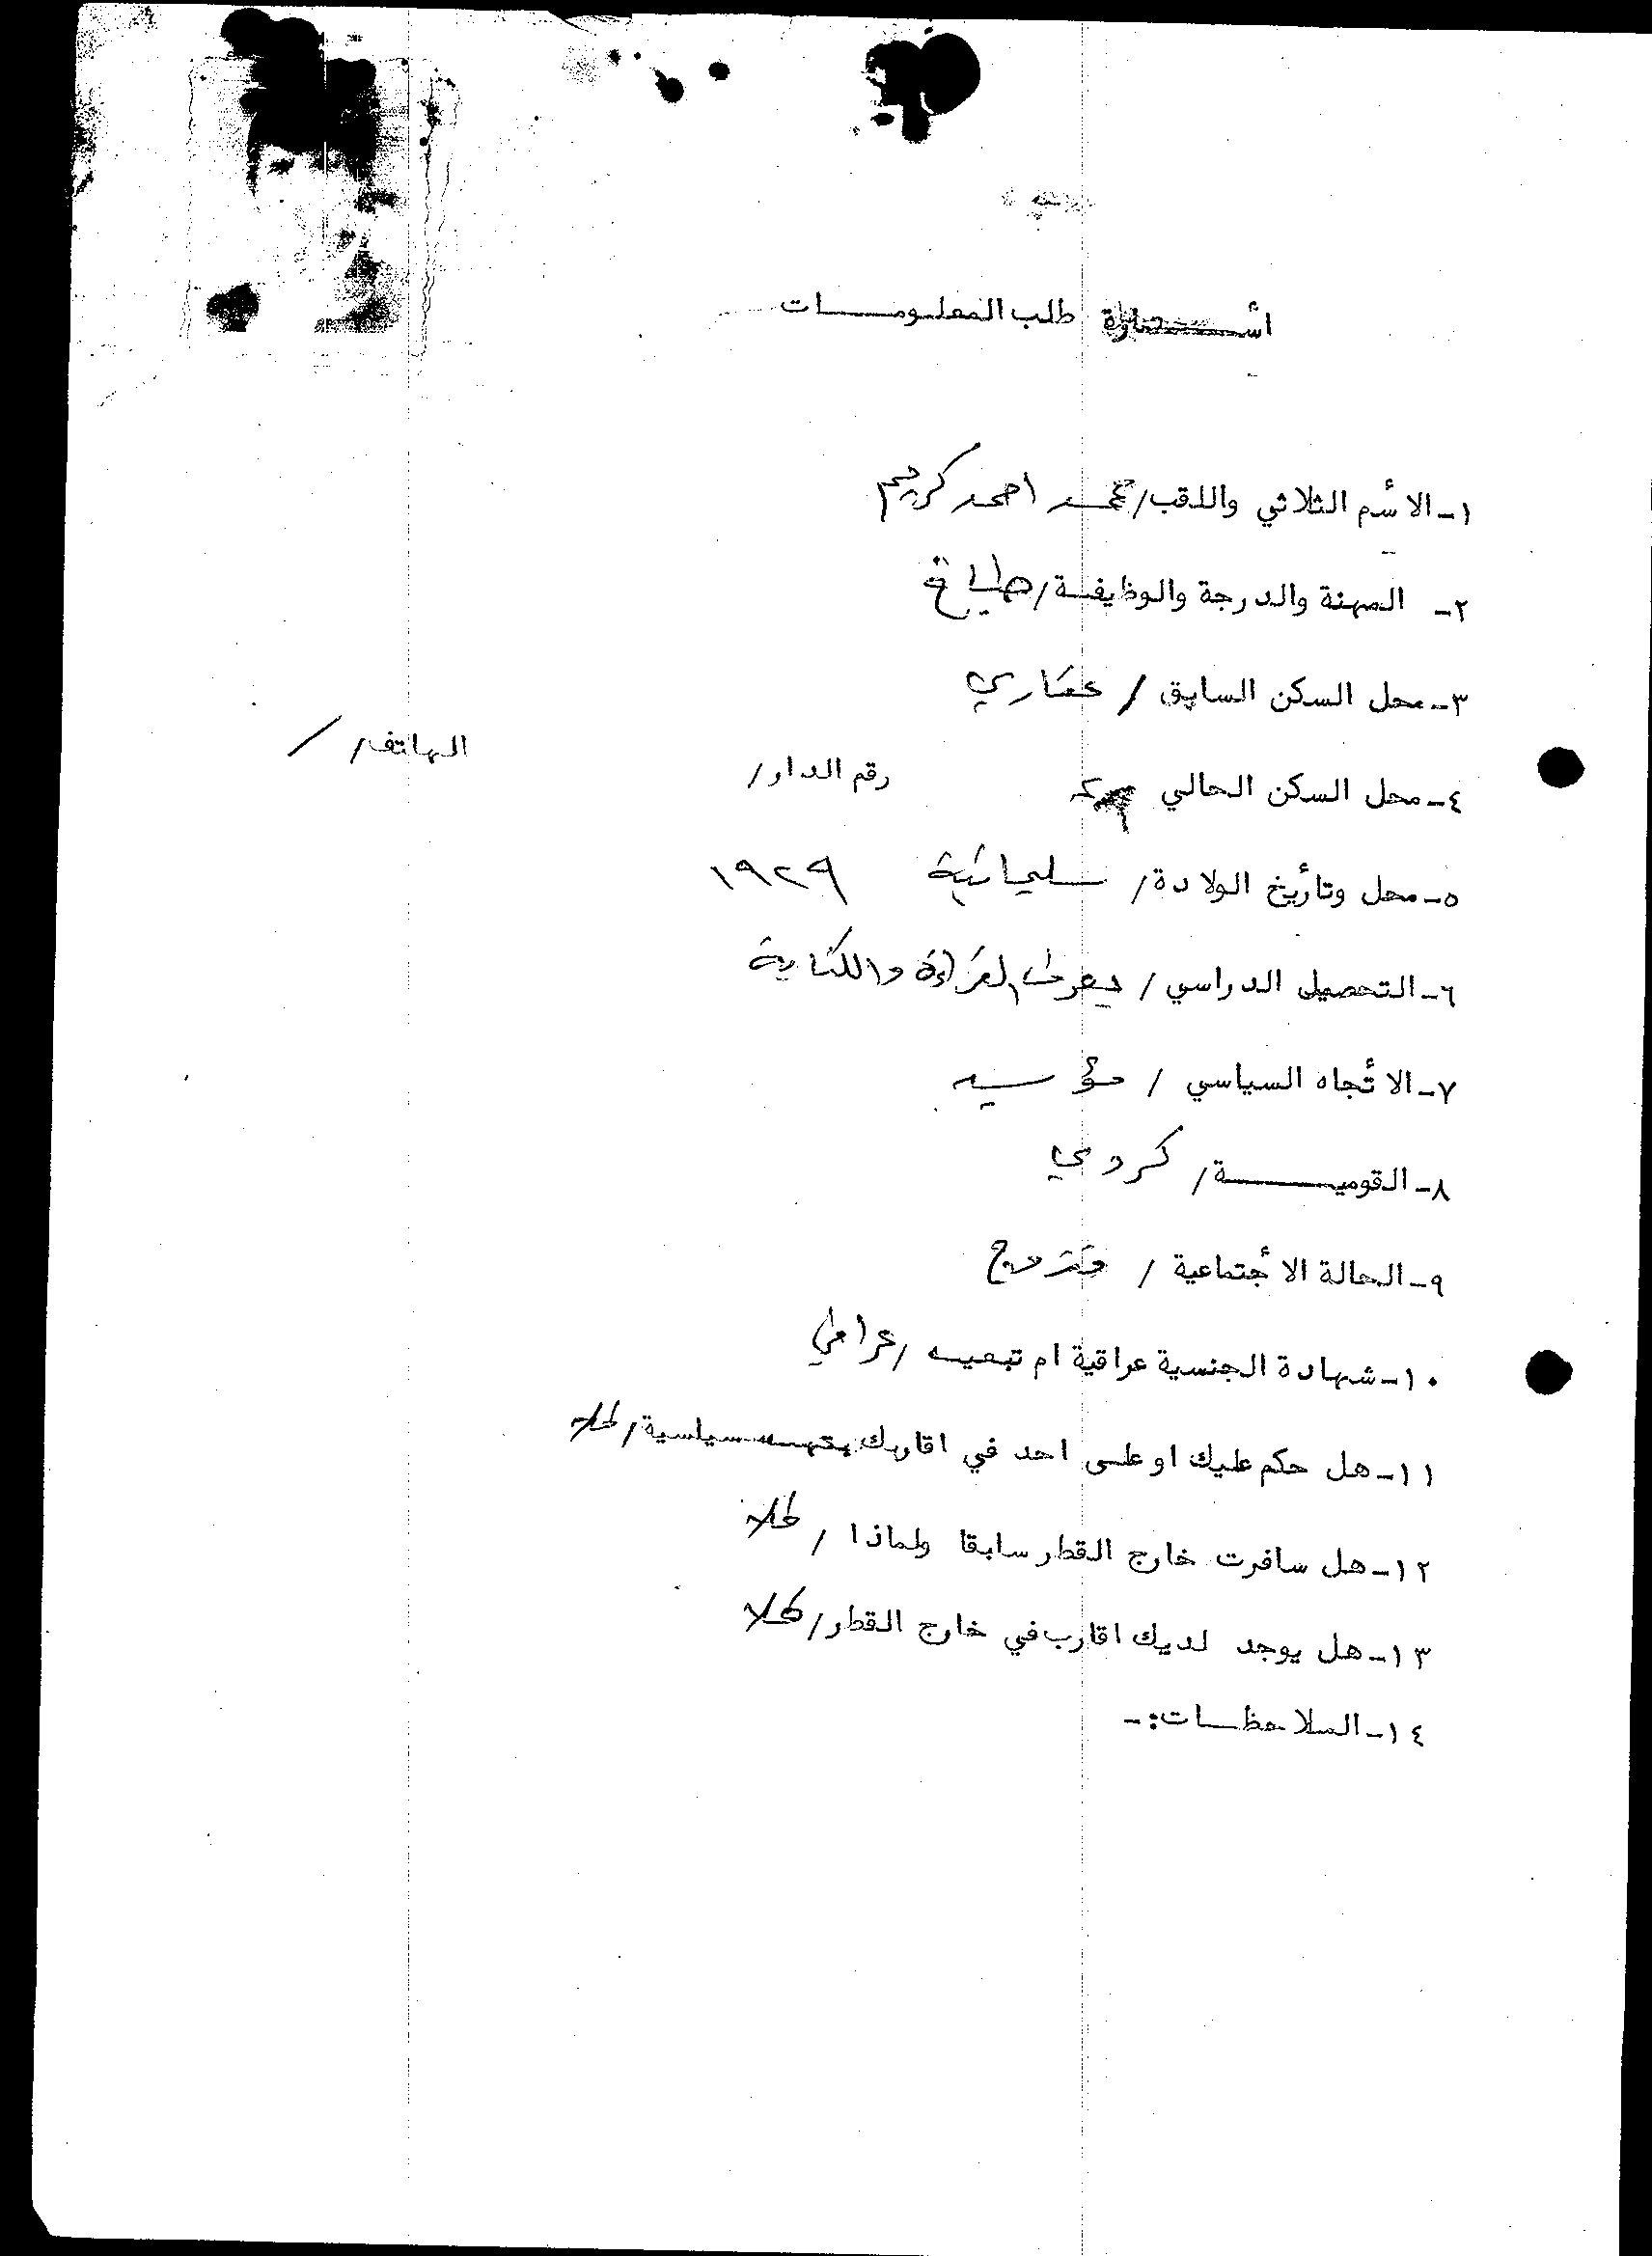 اسـتمارة طلب المعلومـــات
١ـ الاسم الثلاثي واللقب/ محمد احمد كريم
٢ـ المهنة والدرجة والوظيفة/
٣ـ محل السكن السابق / عقاري
٤ـ محل السكن الحالي رقم الدار/ الهاتف/ /
٥ـ محل وتأريخ الولادة/ سليمانية ١٩٢٩
٦ـ التحصيل الدراسي / يعرف القراءة والكتابة
٧ـ الاتجاه السياسي /
٨ـ القوميـــة/ كردي
٩ـ الحالة الأجتماعية / متزوج
١٠ـ شهادة الجنسية عراقية ام تبعيه /عراقي
١١ـ هل حكم عليك او على احد في اقاربك بتهمه سياسية/ كلا
١٢ـ هل سافرت خارج القطر سابقا ولماذا / كلا
١٣ـ هل يوجد لديك اقارب في خارج القطر/ كلا
١٤ـ الملاحظــات:ـ